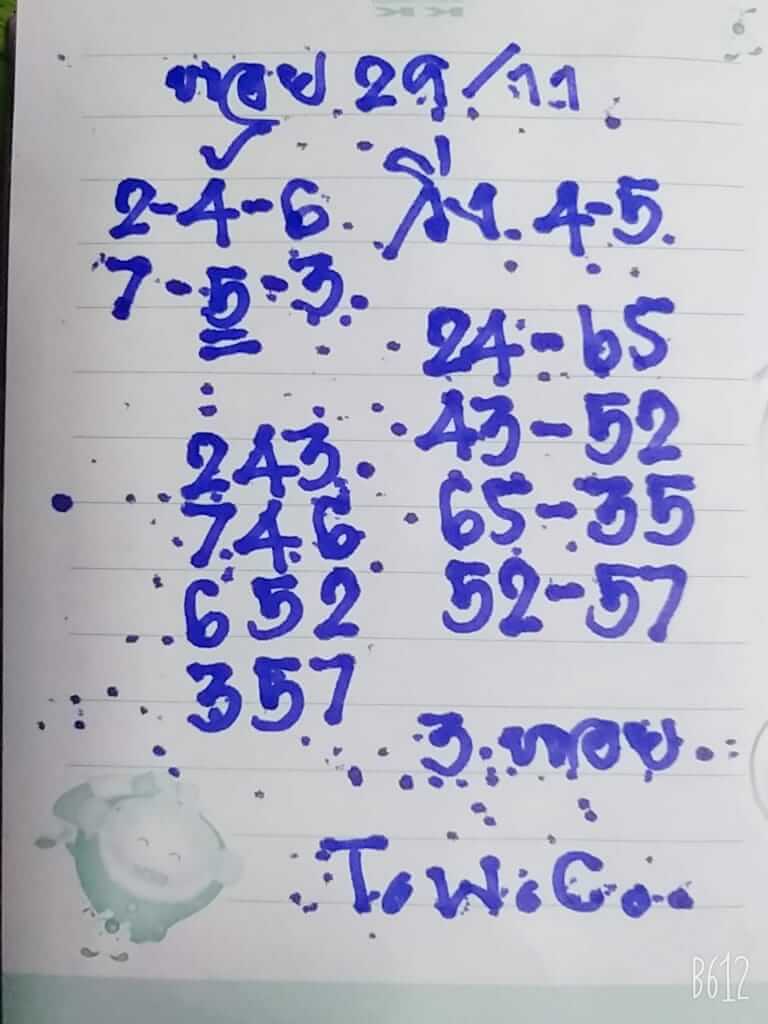 หวย 29/11
2-4-6 วิ่ง. 4-5.
7-5-3.
24-65
43-52
65-35
52-57
243.
7.4.6
652
357
3. หวย.
T. W. C...
B612